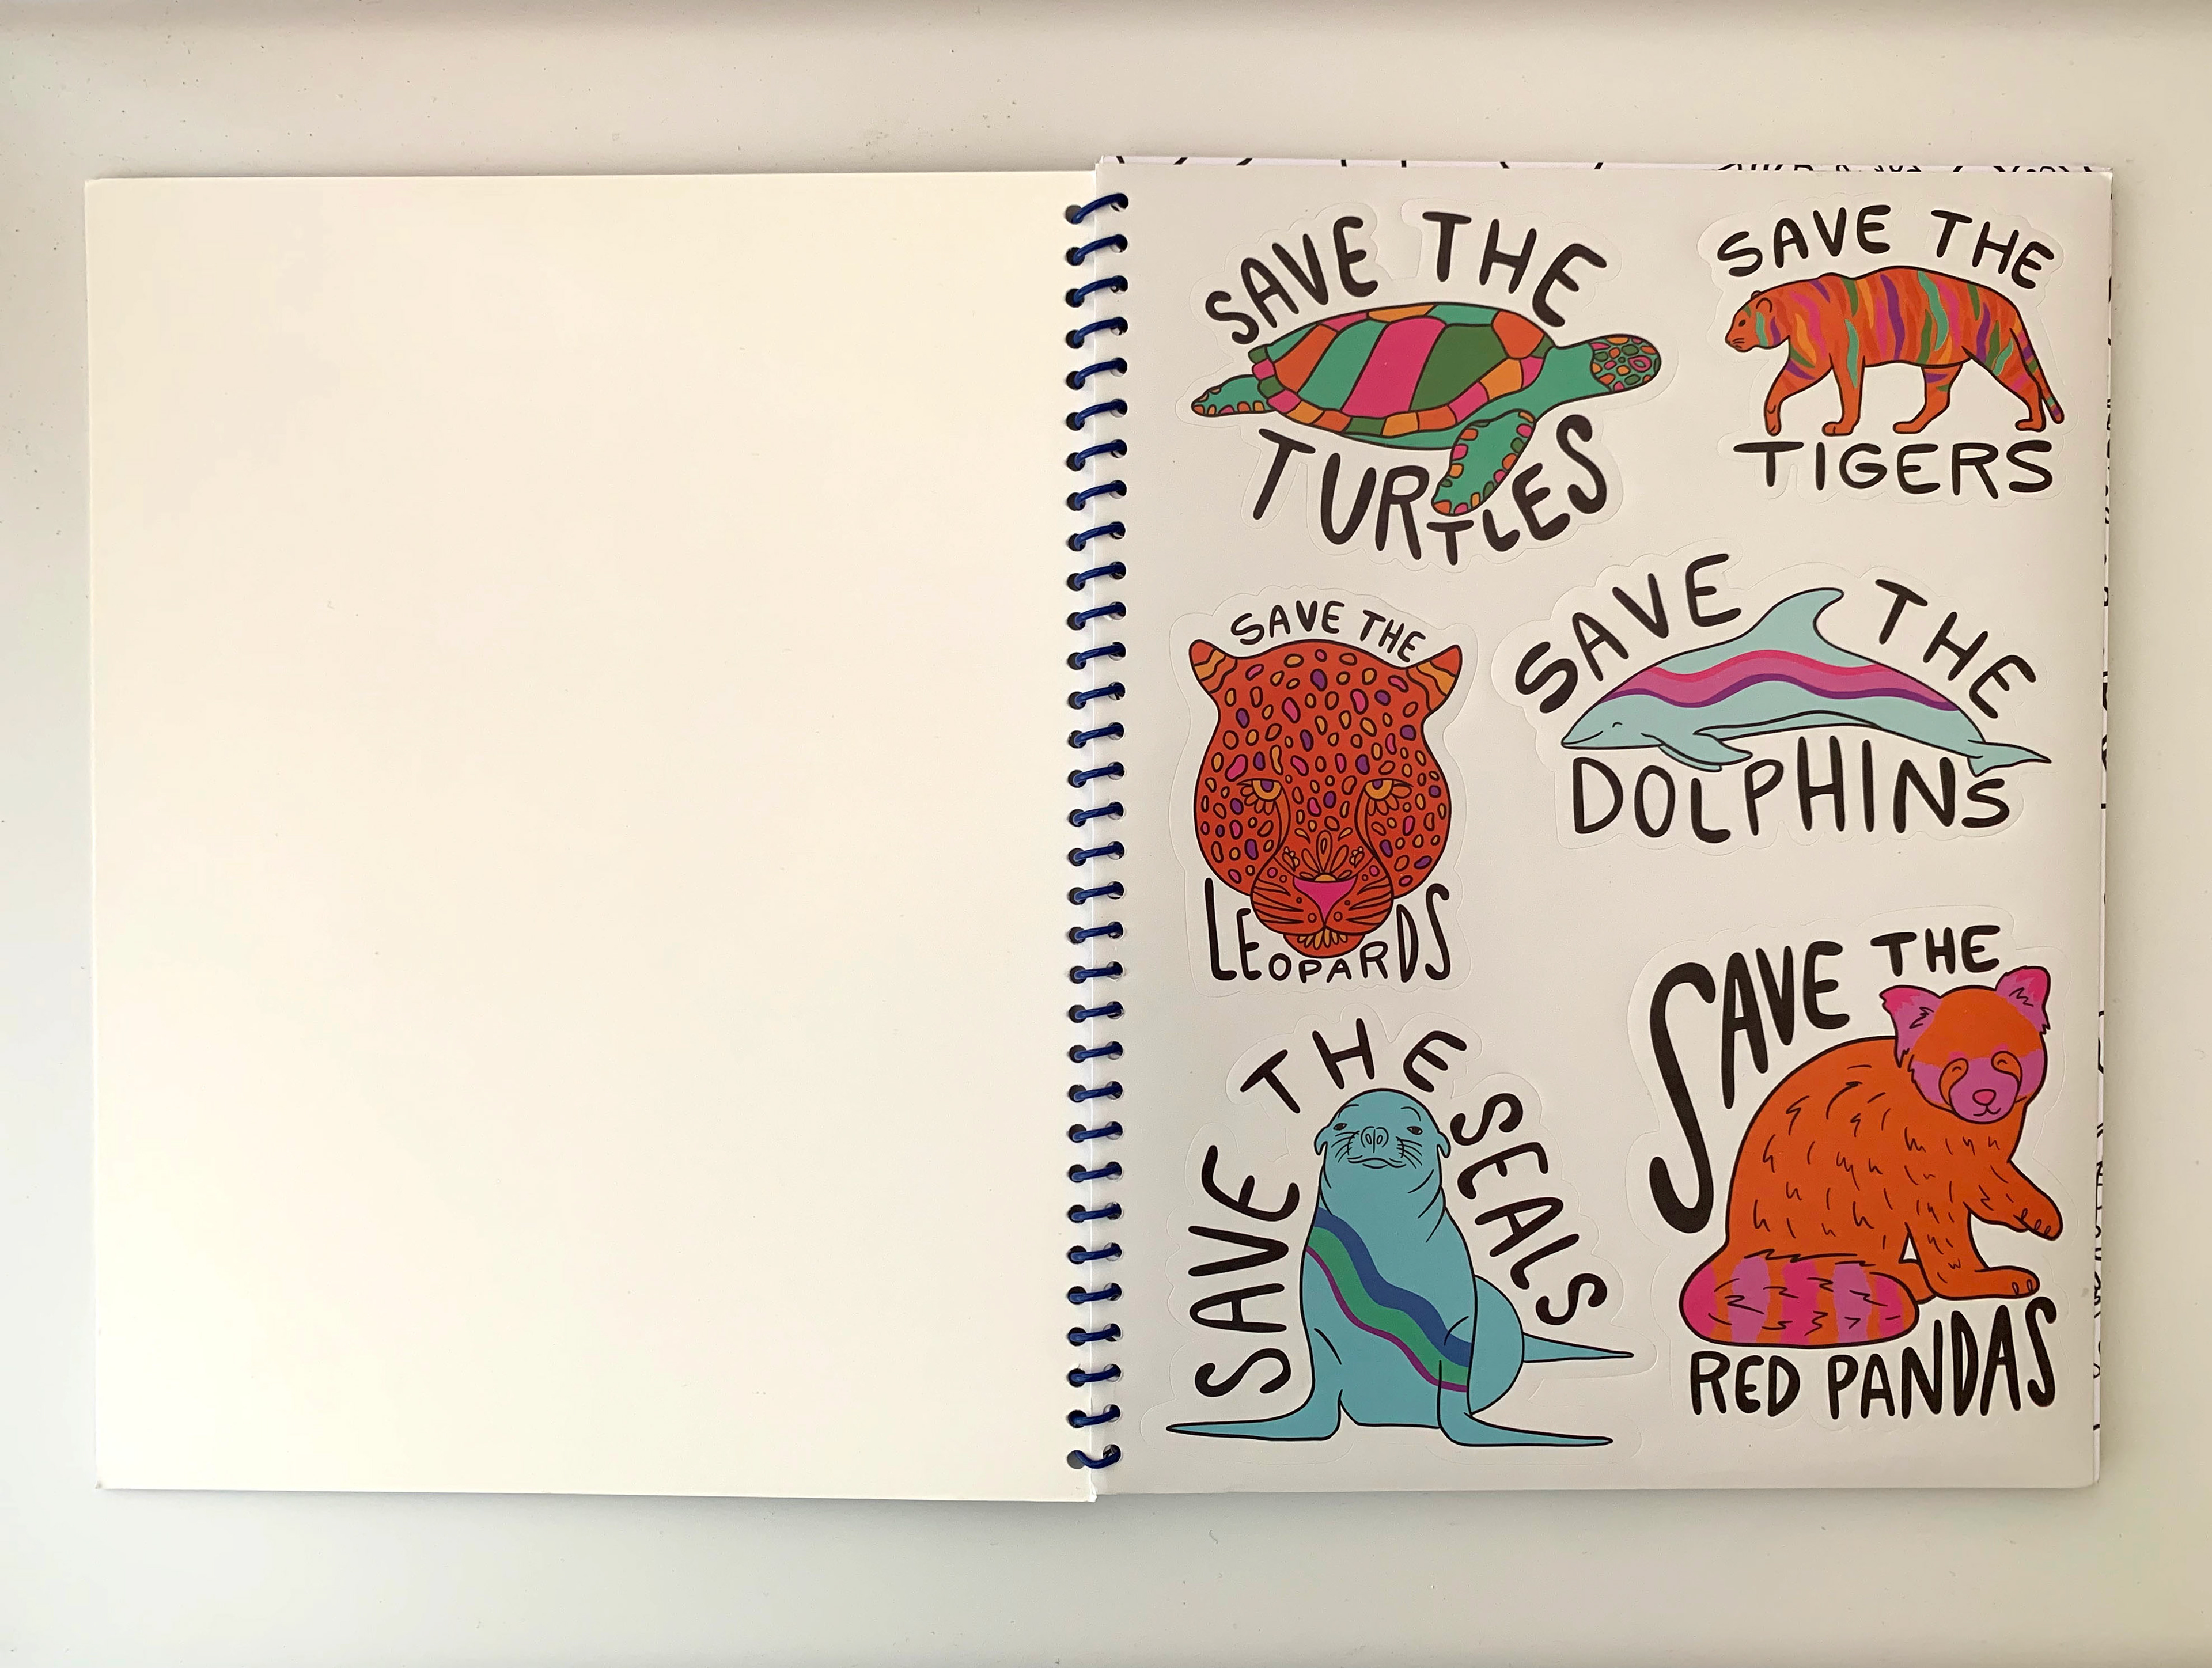 SAVE THE
TURTLES
SAVE THE
TIGERS
SAVE THE
LEOPARDS
SAVE THE
DOLPHINS
SAVE THE SEALS
SAVE THE
RED PANDAS